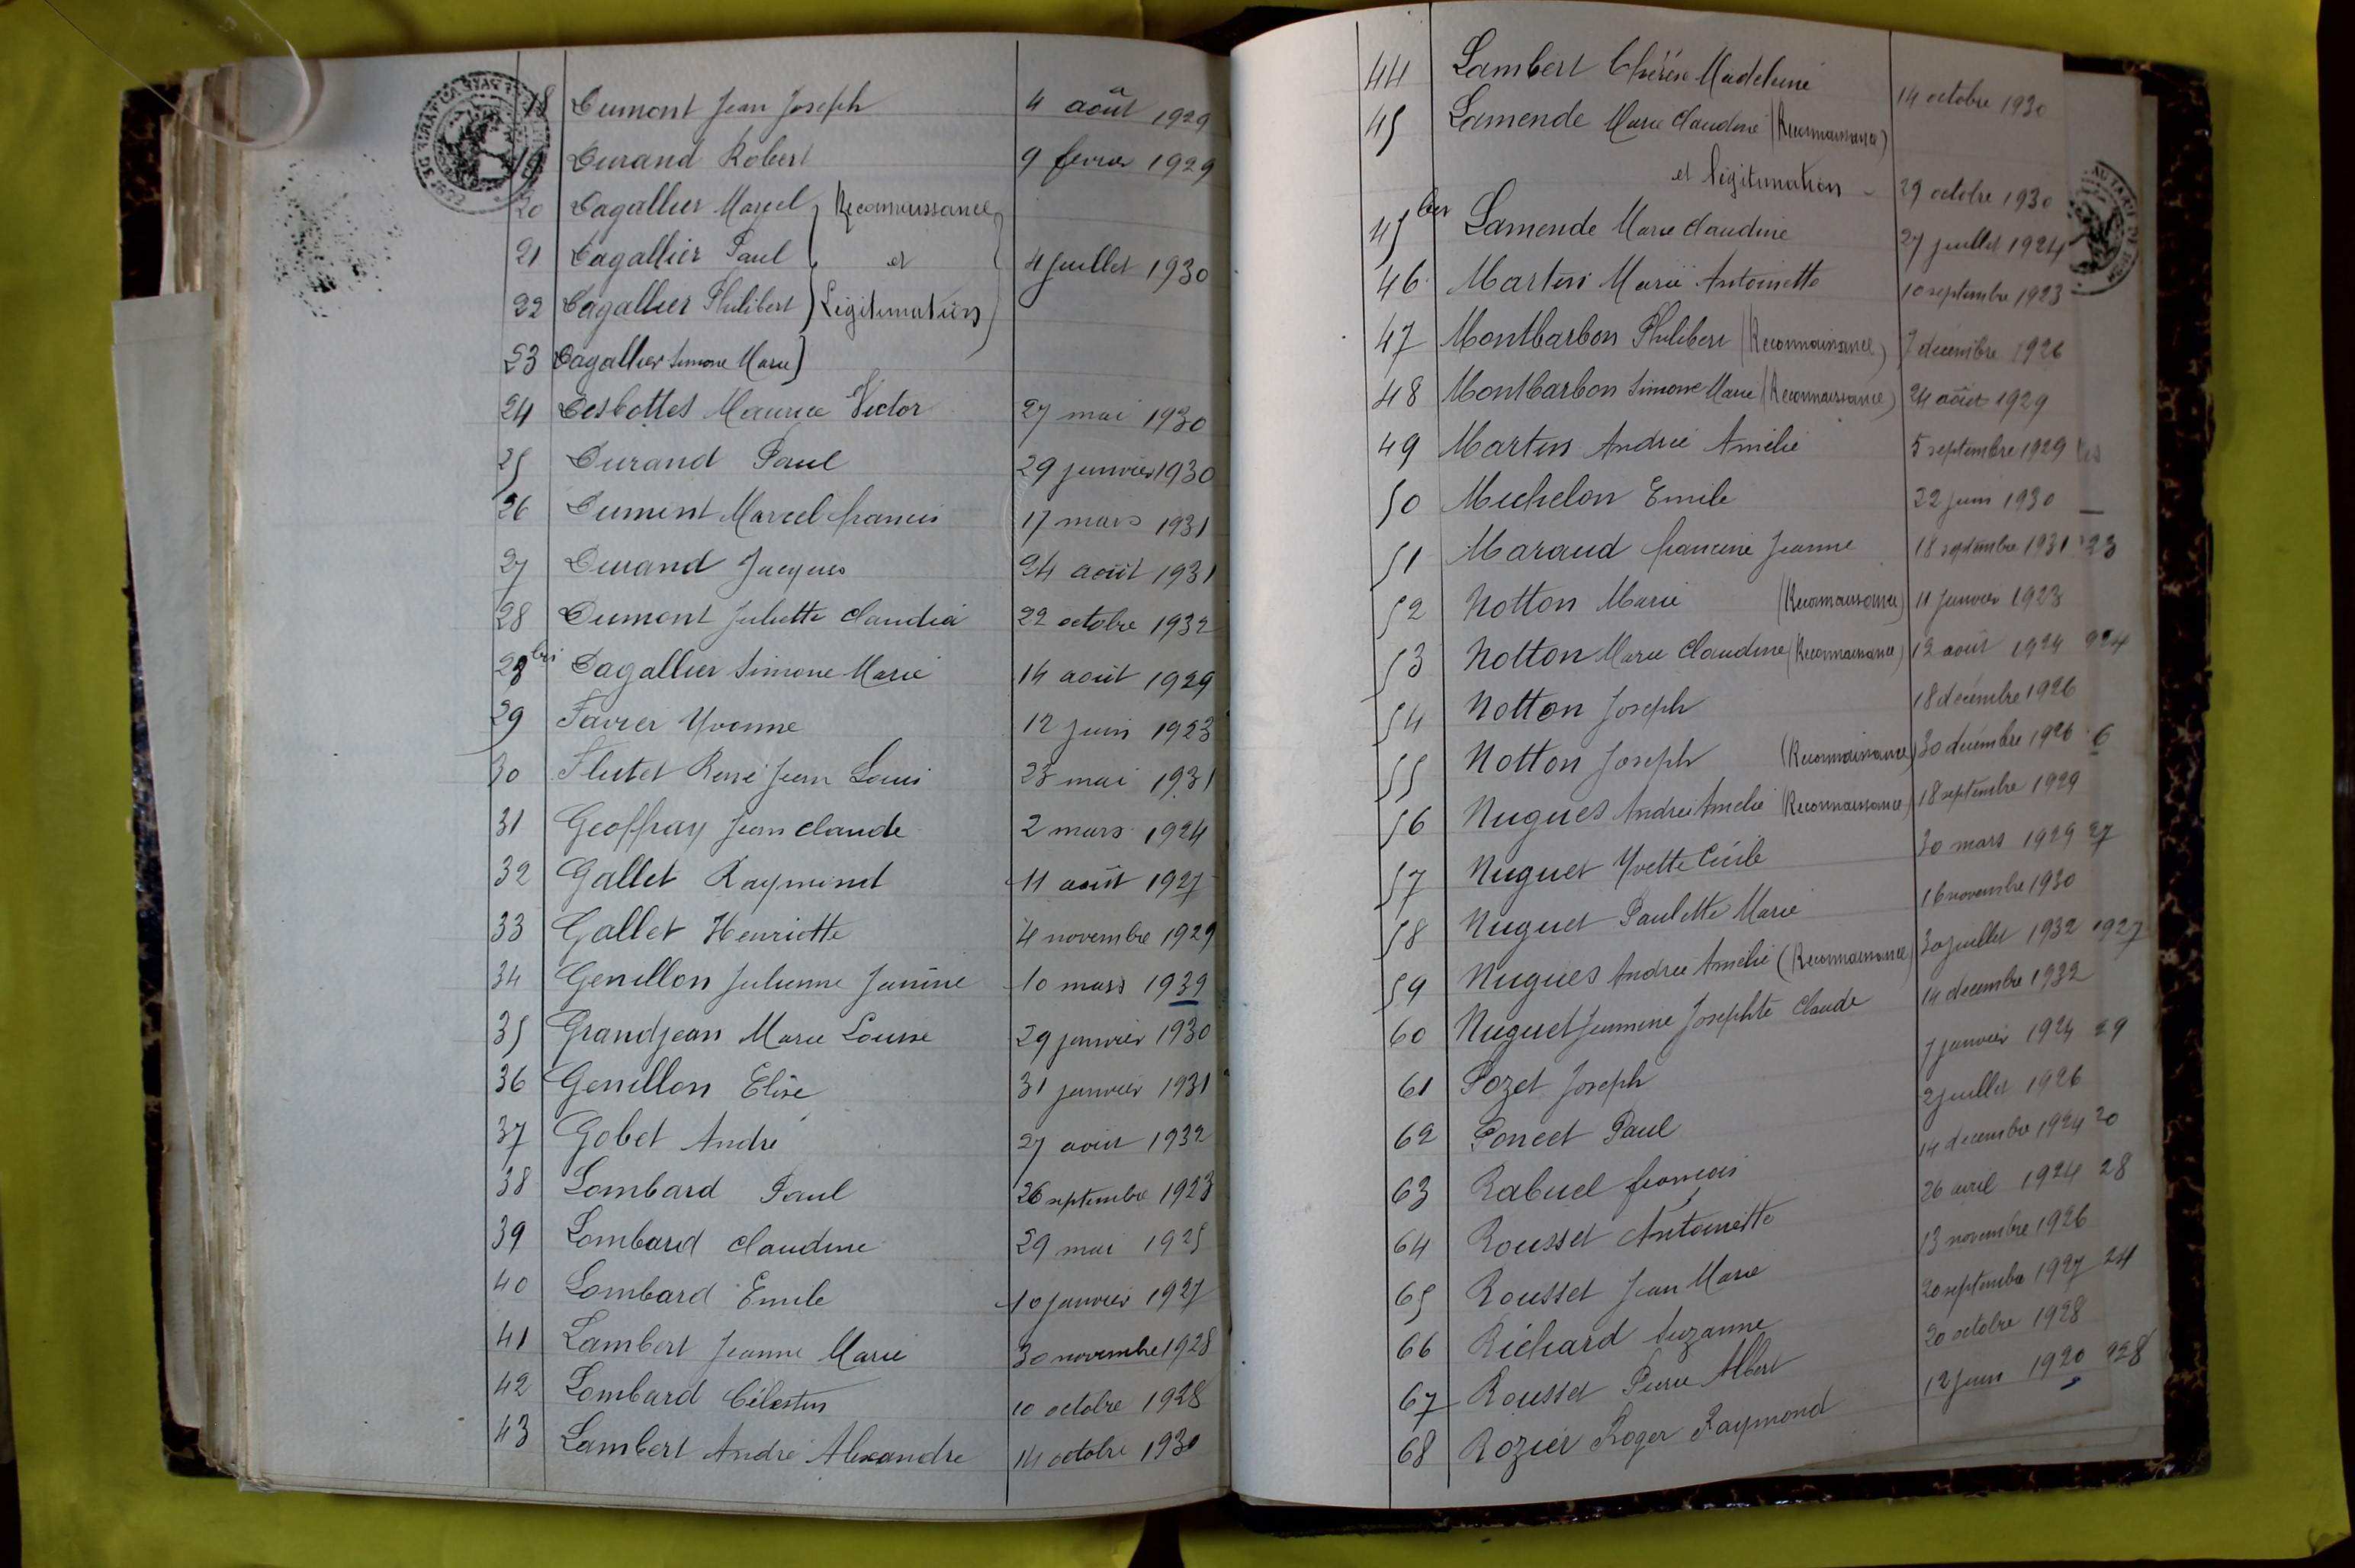 18 Dumont Jean Joseph 4 août 1929
19 Durand Robert 9 fevrier 1929
20 Dagallier Marcel Reconnaissance
21 Dagallier Paul et 4 juillet 1930
22 Dagallier Philibert Légitimation
23 Dagallier Simone Marie
24 Desbottes Maurice Victor 27 mai 1930
25 Durand Paul 29 janvier 1930
26 Dumont Marcel francis 17 mars 1931
27 Durand Jacques 24 août 1931
28 Dumont Juliette Claudia 22 octobre 1932
28 bis Dagallier Simone Marie 14 août 1929
29 Favier Yvonne 12 juin 1923
30 Flutet René Jean Louis 23 mai 1931
31 Geoffray Jean claude 2 mars 1924
32 Gallet Raymond 11 août 1927
33 Gallet Henriette 4 novembre 1929
34 Genillon Julienne Janine 10 mars 1939
35 Grandjean Marie Louise 29 janvier 1930
36 Genillon Elise 31 janvier 1931
37 Gobet André 27 août 1932
38 Lombard Paul 26 septembre 1923
39 Lombard claudine 29 mai 1925
40 Lombard Emile 10 janvier 1927
41 Lambert Jeanne Marie 30 novembre 1928
42 Lombard Célestin 10 octobre 1928
43 Lambert André Alexandre 14 octobre 1930
44 Lambert Thérèse Madeleine 14 octobre 1930
45 Lamende Marie Claudine (Reconnaissance)
et légitimation - 29 octobre 1930
45 bis Lamende Marie Claudine 27 juillet 1924
46 Martin Marie Antoinette 10 septembre 1923
47 Montbarbon Philibert (Reconnaissance) 7 décembre 1926
48 Montbarbon Simone Marie (Reconnaissance) 24 août 1929
49 Martin Andrée Amélie 5 septembre 1929
50 Michelon Emile 22 juin 1930
51 Maraud francine Jeanne 18 septembre 1931 23
52 Notton Marie (Reconnaissance) 11 janvier 1923
53 Notton Marie Claudine (Reconnaissance) 12 août 1924 924
54 Notton Joseph 18 décembre 1926
55 Notton Joseph (Reconnaissance) 30 décembre 1926 6
56 Nugues Andrée Amélie (Reconnaissance) 18 septembre 1929
57 Nuguet Yvette Cécile 30 mars 1929 27
58 Nuguet Paulette Marie 16 novembre 1930
59 Nugues Andrée Amélie (Reconnaissance) 30 juillet 1932 1927
60 Nuguet Jeannine Josephte Claude 14 décembre 1932
61 Pozet Joseph 7 janvier 1924 29
62 Poncet Paul 2 juillet 1926
63 Rabuel françois 14 décembre 1924 20
64 Rousset Antoinette 26 avril 1924 28
65 Rousset Jean Marie 13 novembre 1926
66 Richard Suzanne 20 septembre 1927 24
67 Rousset Pierre Albert 20 octobre 1928
68 Rozier Roger Raymond 12 juin 1920 928